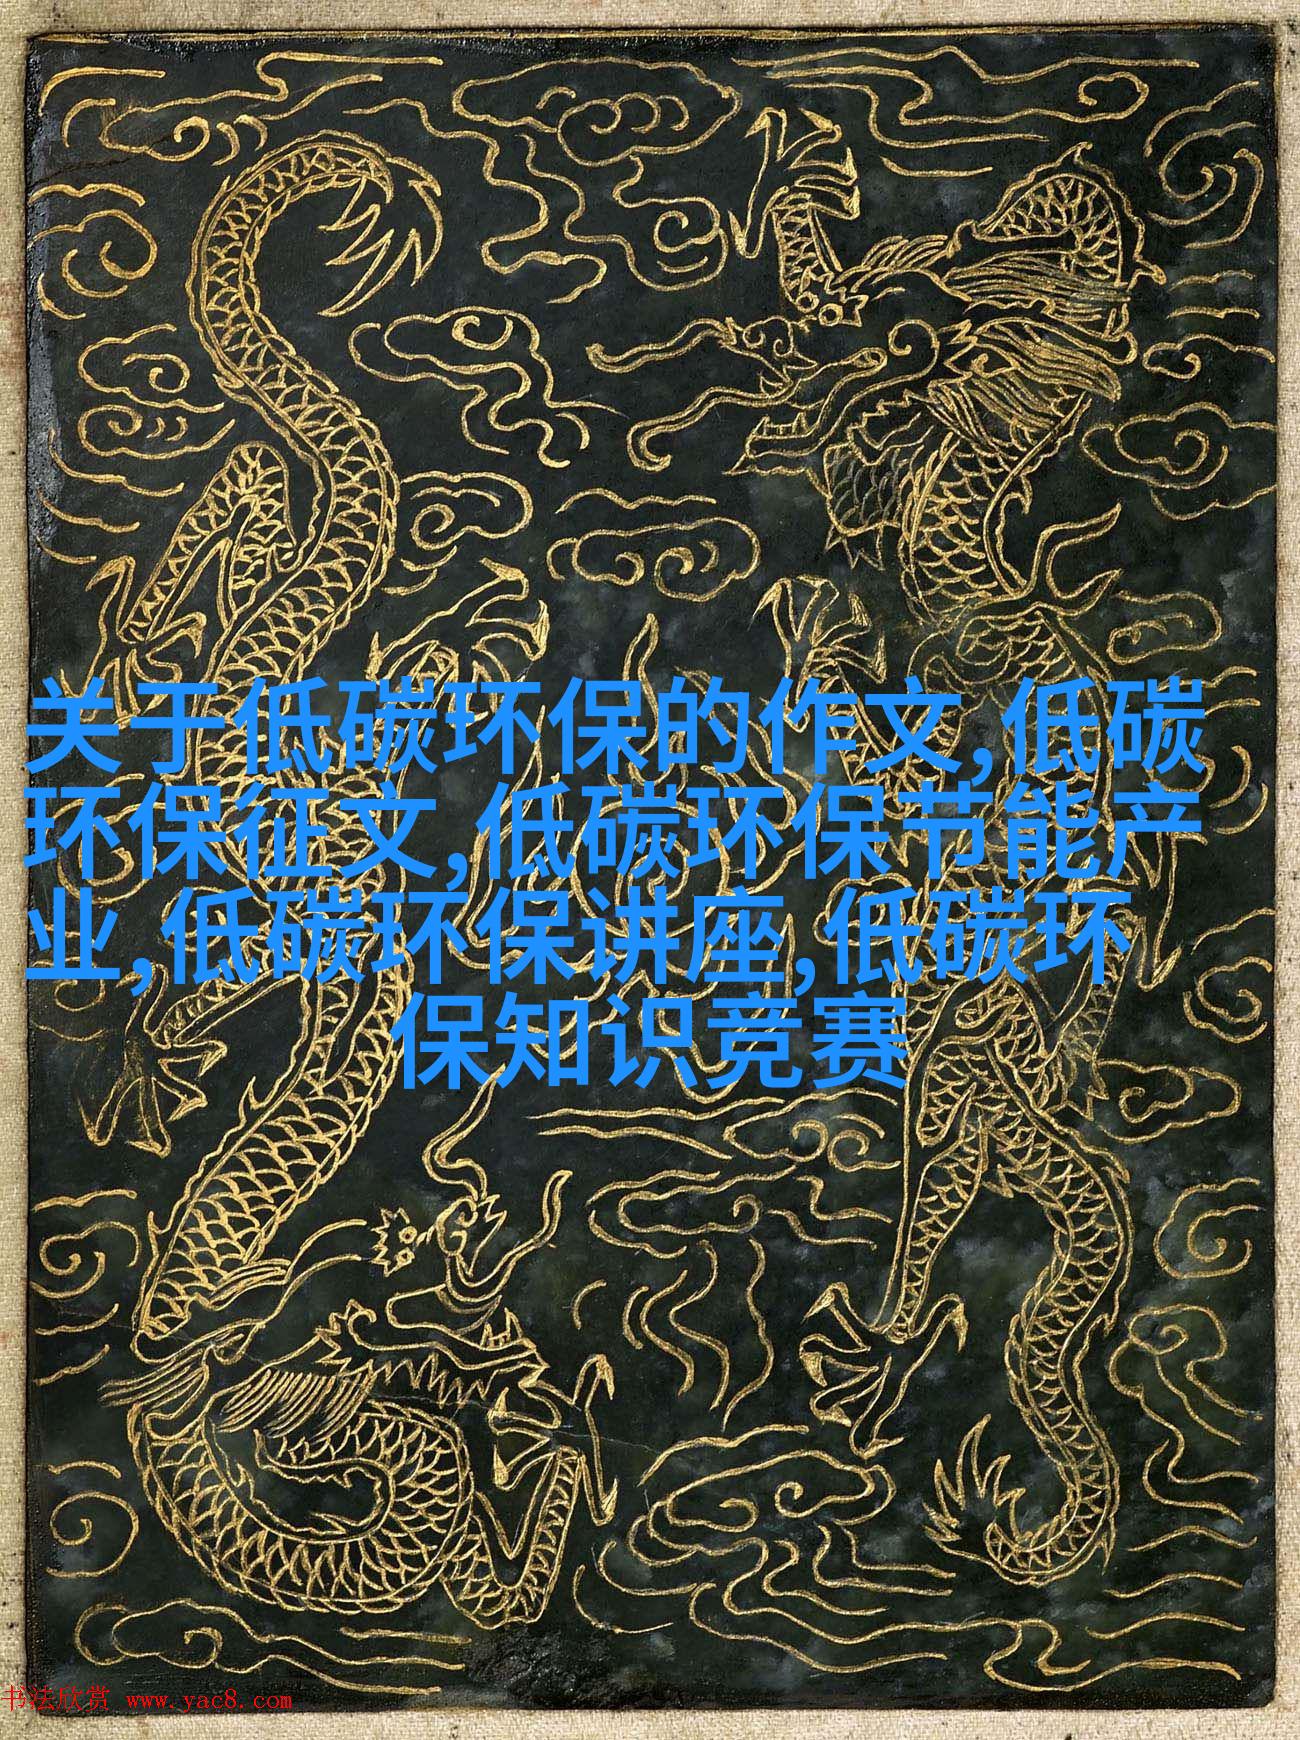 关于低碳环保的作文,低碳
环保征文,低碳环保节能产
业,低碳环保讲座,低碳环
保知识竞赛
书法欣赏 www.yac8.com